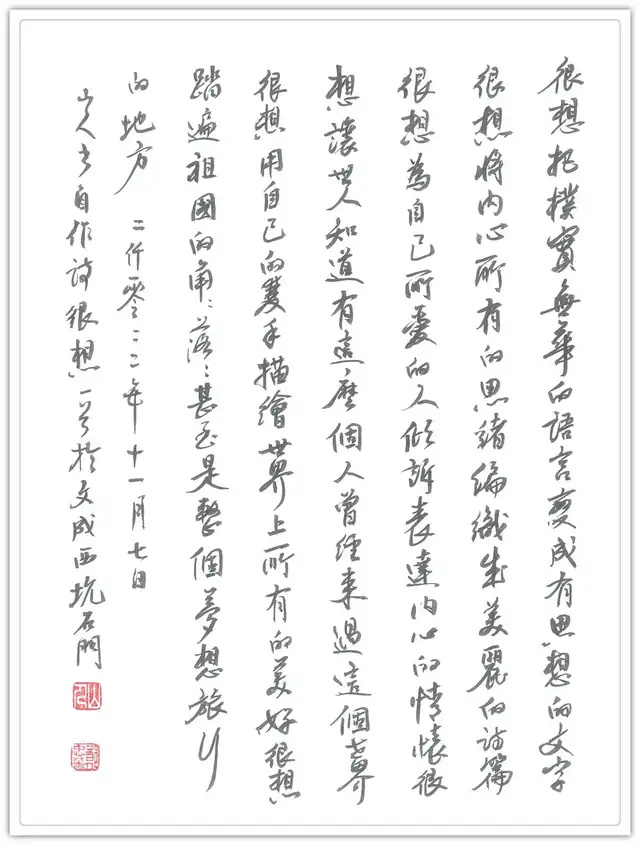 很想把樸實無華的語言變成有思想的文字
很想將內心所有的思緒編織成美麗的詩篇
很想為自己所愛的人傾訴表達內心的情懷很
想讓世人知道有這麼個人曾經來過這個世界
很想用自己的雙手描繪世界上所有的美好很想
踏遍祖國的角々落々甚至是整個夢想旅行
的地方 二仟零二二年十一月七日
山人書自作詩很想一首於文成西坑石門